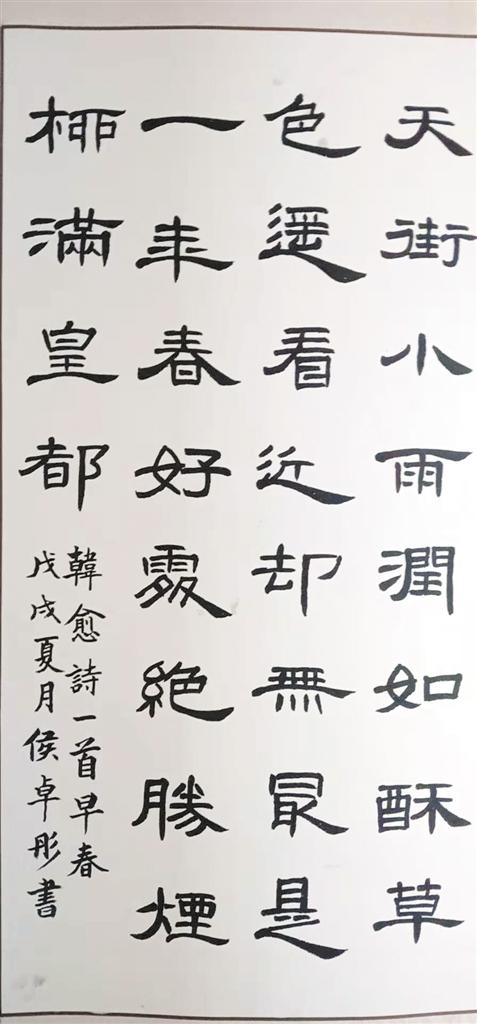 天街小雨潤如酥草
色遥看近却無最是
一年春好處絕勝煙
柳滿皇都
韓愈詩一首早春
戊戌夏月侯卓彤書